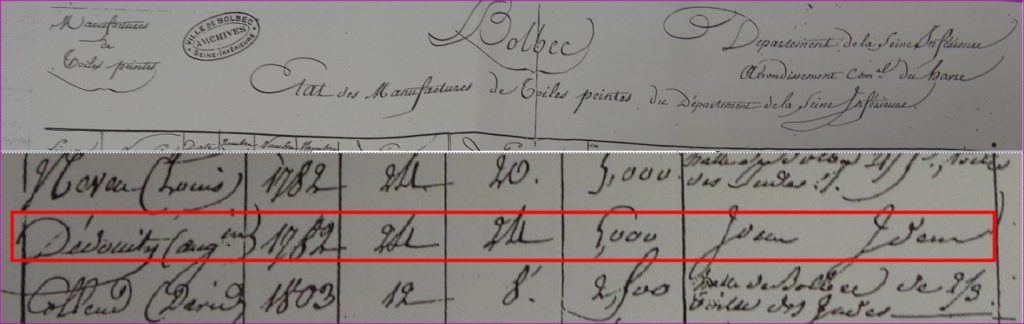 Manufactures
de
Toiles peintes
VILLE DE BOLBEC
ARCHIVES
SEINE-INFÉRIEURE
Bolbec
Departement de la Seine Inférieure
Arrondissement Com.al du havre
Etat des Manufactures de Toiles peintes du Département de la Seine Inférieure
Neveu (Louis) 1782 24 20. 5,000
des Indes
1782 24 24 5,000 Idem Idem
(David) 1803 12 8. 2,500 Toile de Bolbec de 2/3
Toille des Indes